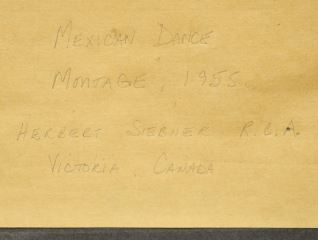 MEXICAN DANCE
MONTAGE, 1955
HERBERT SIEBNER R.C.A.
VICTORIA, CANADA